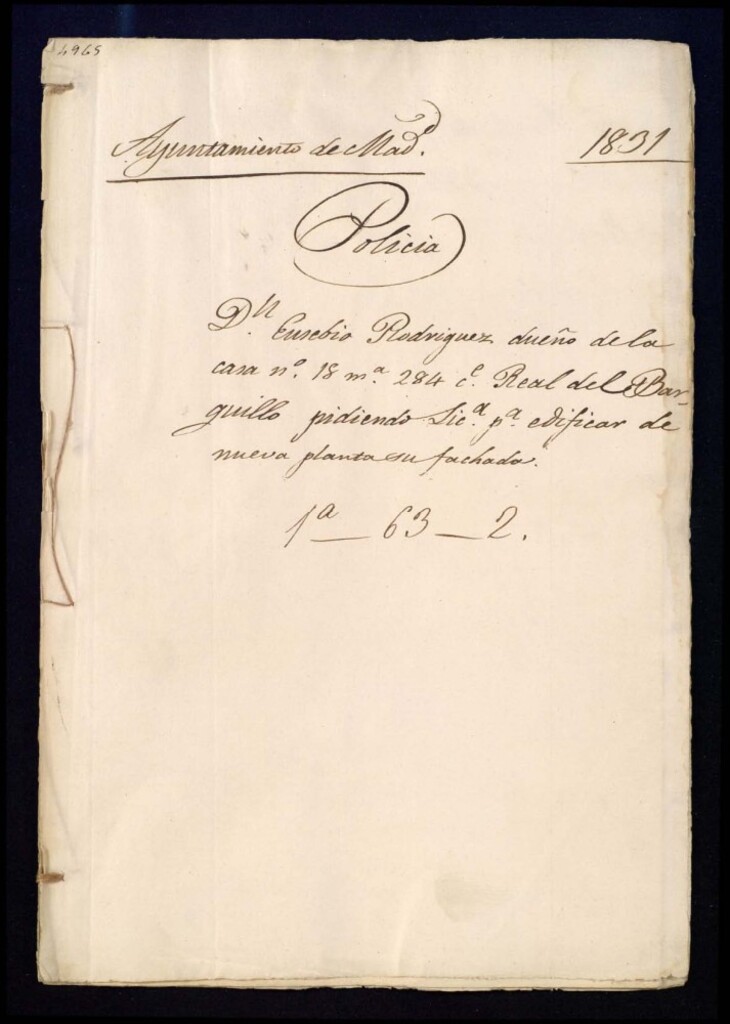 4965
Ayuntamiento de Mad.d
1831
Policia
D.n Eusebio Rodriguez dueño de la
casa n.o 18 m.a 284 c.e Real del Bar-
quillo pidiendo Lic.a p.a edificar de
nueva planta su fachada.
1a — 63 — 2.